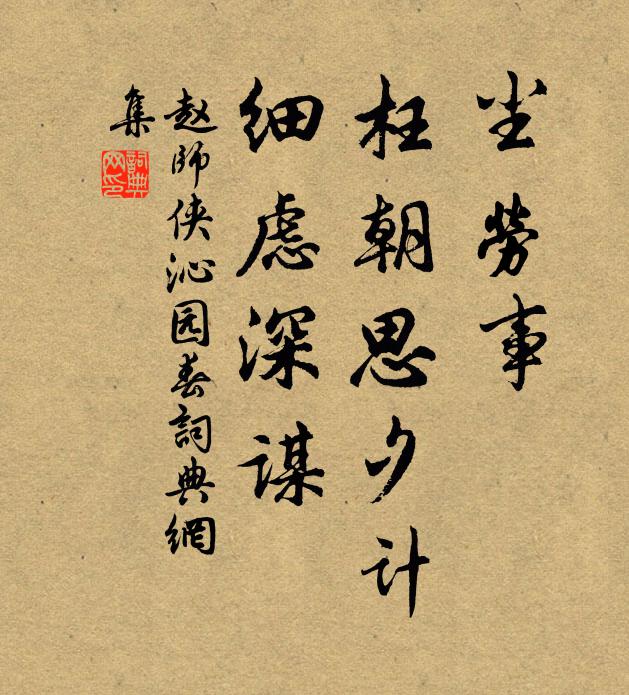 尘劳事
枉朝思夕计
细虑深谋
赵師侠沁园春詞典網
集
詞典网印